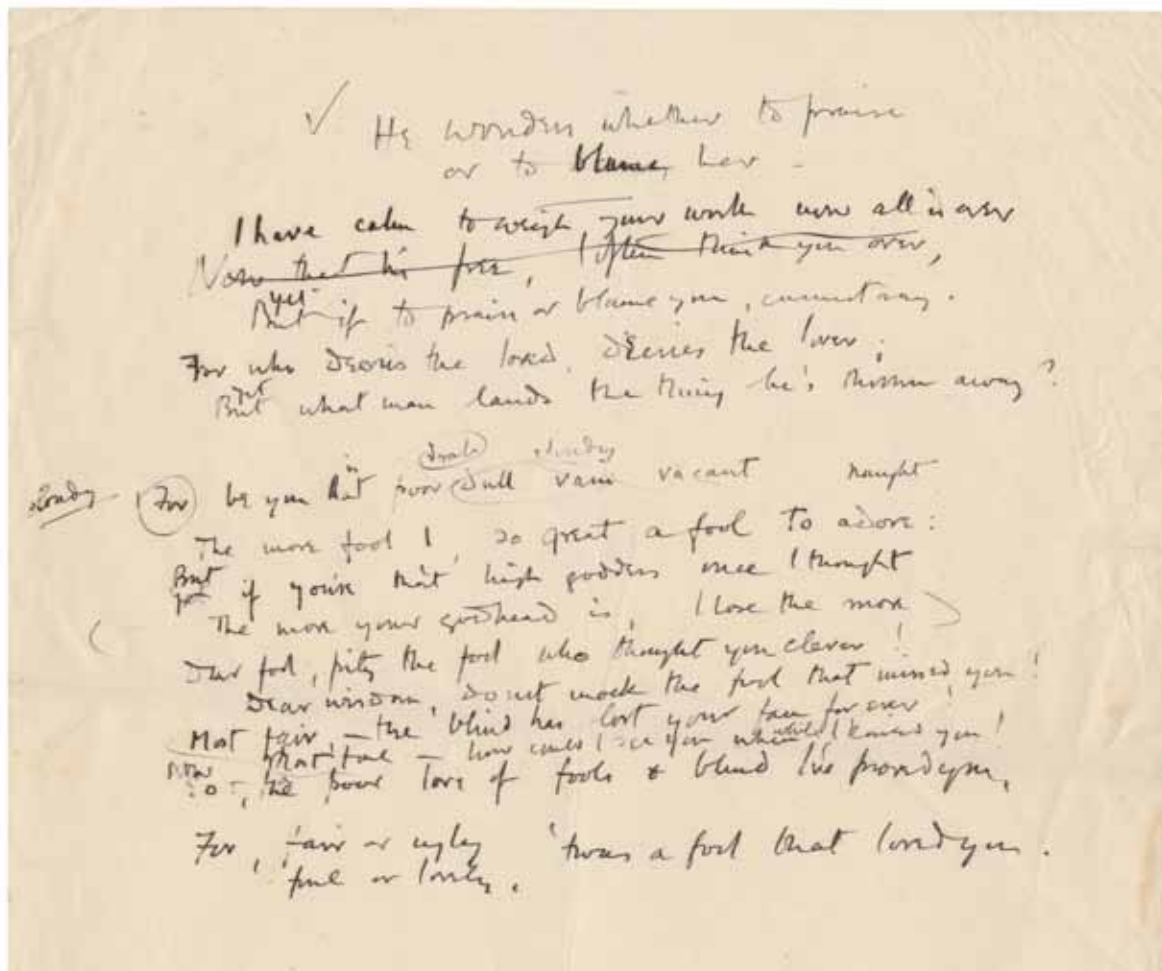 ✓ He wonders whether to praise
or to blame her -
I have calm to weigh your worth now all is over
Now that I'm free, I often think you over,
yet
But if to praise or blame you, cannot say.
For who decries the loved, decries the lover;
yet
But what man lauds the thing he's thrown away?
in
For be you that poor dull vain vacant nought
The more fool I, so great a fool to adore:
But
if you're that high goddess once I thought
The more your godhead is, I lose the more
Dear fool, pity the fool who thought you clever!
Dear wisdom, do not mock the fool that missed you!
Most fair, - the blind has lost your face for ever!
Most foul - how could I see you while I kissed you!
Now
So - the poor love of fools & blind I've proved you,
For, fair or ugly 'twas a fool that loved you.
foul or lovely,